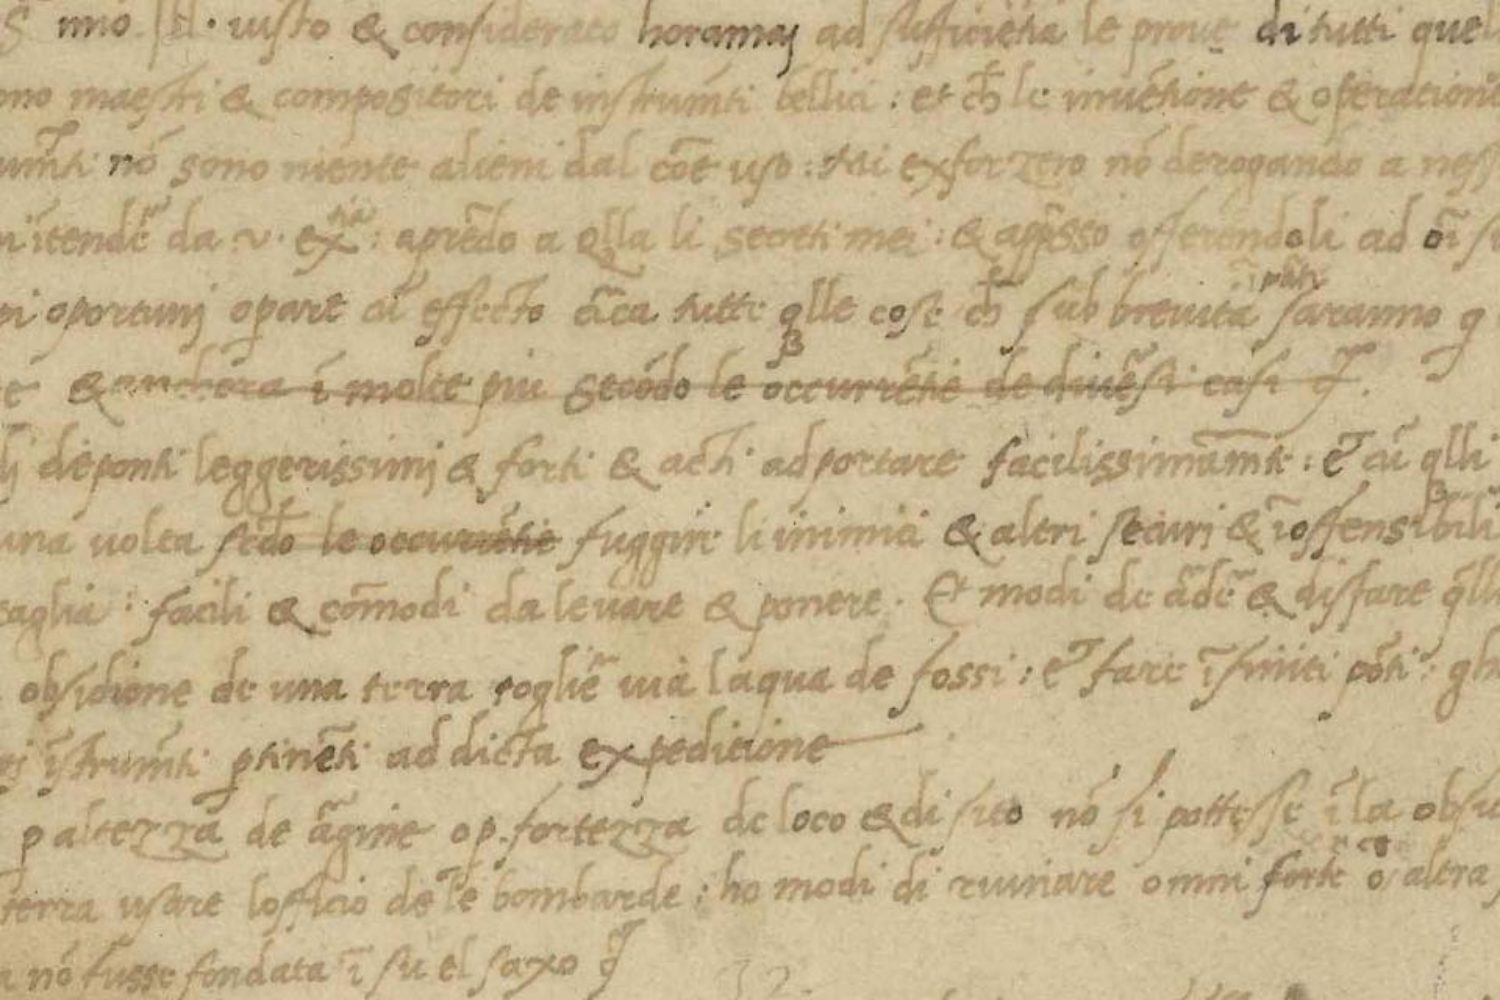 S mio Ill. visto & considerato horamaj ad sufficiētia le prove di tutti quel
ono maestri & compositori de instrumti bellici : et ch le invētione & operatione
umti nō sono niente alieni dal cōe uso : Mi exforzero nō derogando a ness
itendē da v. ex tia : aprēdo a qlla li secreti mei : & appsso offerendoli ad oī
pi oportuni opare cū effecto cca tutte qlle cose ch sub brevita saranno q
& anchora ī molte piu secōdo le occurrētie de divesi casi
dj di ponti leggerissimj & forti & acti ad portare facilissimamte : et cū qlli
una volta secdo le occurrētie fuggire li inimici & altri securi & ioffensibili
taglia : facili & cōmodi da levare & ponere. Et modi de ardē & disfare qlli
obsidione de una terra toglie via laqua de fossi : et fare īfiniti pōti ghati
istrumti ptinēti ad dicta expeditione
p altezza de argine o p fortezza de loco & di sito nō si pottesse ī la obsi
terra usare lofficio de le bombarde : ho modi di ruinare omni forte o altra
nō fusse fondata ī su el saxo
32.